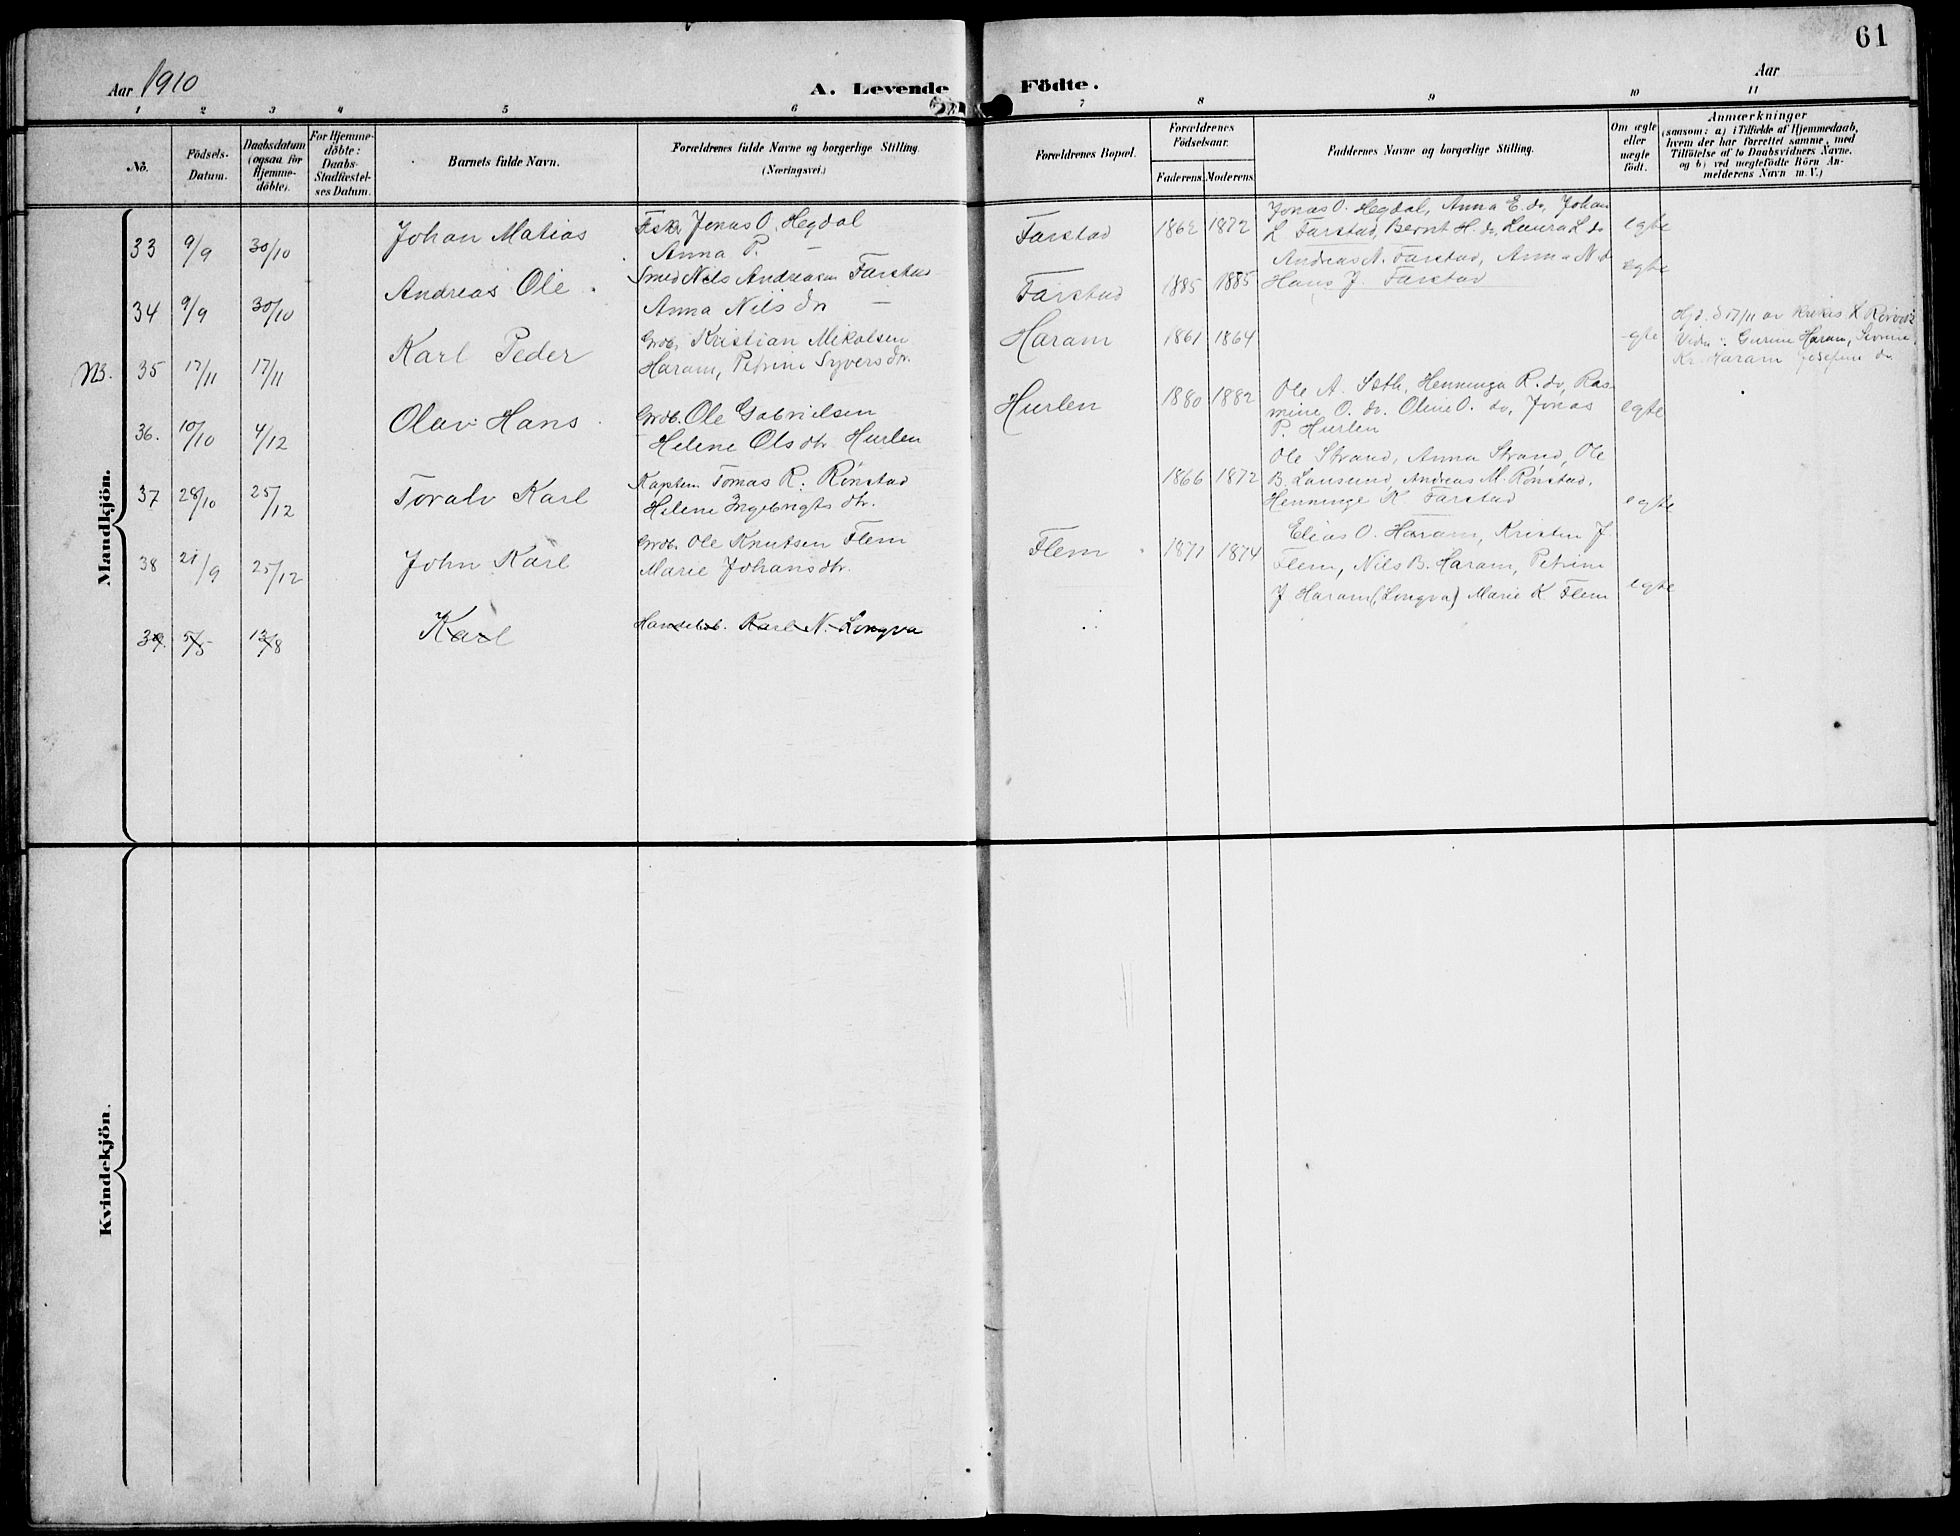 61
Aar 1910
A. Levende Födte.
Aar
1 2 3 4 5 6 7 8 9 10 11
No.
Födsels-Datum.
Daabsdatum (ogsaa for Hjemme-döbte).
For Hjemme-döbte: Daabs-Stadfæstel-ses Datum.
Barnets fulde Navn.
Forældrenes fulde Navne og borgerlige Stilling. (Næringsvei.)
Forældrenes Bopæl.
Forældrenes Födselsaar.
Faderens. Moderens.
Faddernes Navne og borgerlige Stilling.
Om ægte eller uægte födt.
Anmærkninger
(saasom: a) i Tilfælde af Hjemmedaab, hvem der har forrettet samme, med Tilföielse af to Daabsvidners Navne, og b) ved uegtefödte Börn An-melderens Navn m. V.)
Mandkjön.
33 9/9 30/10 Johan Matias Fisker Jonas O. Hegdal
Anna P. —
Farstad 1862 1872 Jonas O. Hegdal, Anna E. do, Johan
L Farstad, Bernt H. do, Laura L do egte
34 9/9 30/10 Andreas Ole Smed Nils Andreasen Farstad
Anna Nils dr —
Farstad 1885 1885 Andreas N. Farstad, Anna N. d
Hans J. Farstad egte
NB. 35 17/11 17/11 Karl Peder Grdb. Kristian Mikalsen
Haram, Petrine Syversdr.
Haram 1861 1864 egte
Hj. d. 17/11 av
Vidn: Gurine Haram,
Kr. Haram Josefine do
36. 10/10 4/12 Olav Hans Grdb. Ole Gabrielsen
Helene Olsdtr Hurlen
Hurlen 1880 1882 Ole A. Sæth, Henninga R. do, Ras-
mine O. do. Oline O. do, Jonas
P. Hurlen egte
37 28/10 25/12 Toralv Karl Kaptein Tomas R. Rönstad
Helene Ingebrigts dtr.
1866 1872 Ole Strand, Anna Strand, Ole
B. Lausund, Andreas M. Rönstad,
Henninge K Farstad egte
38 21/9 25/12 John Karl Grdb. Ole Knutsen Flem
Marie Johansdtr.
Flem 1871 1874 Elias O. Haram, Kristen J.
Flem, Nils B. Haram, Petrine
J Haram (Longva) Marie K. Flem egte
39. 5/5 13/8 Karl Handelsb. Karl N. Longva
Kvindekjön.